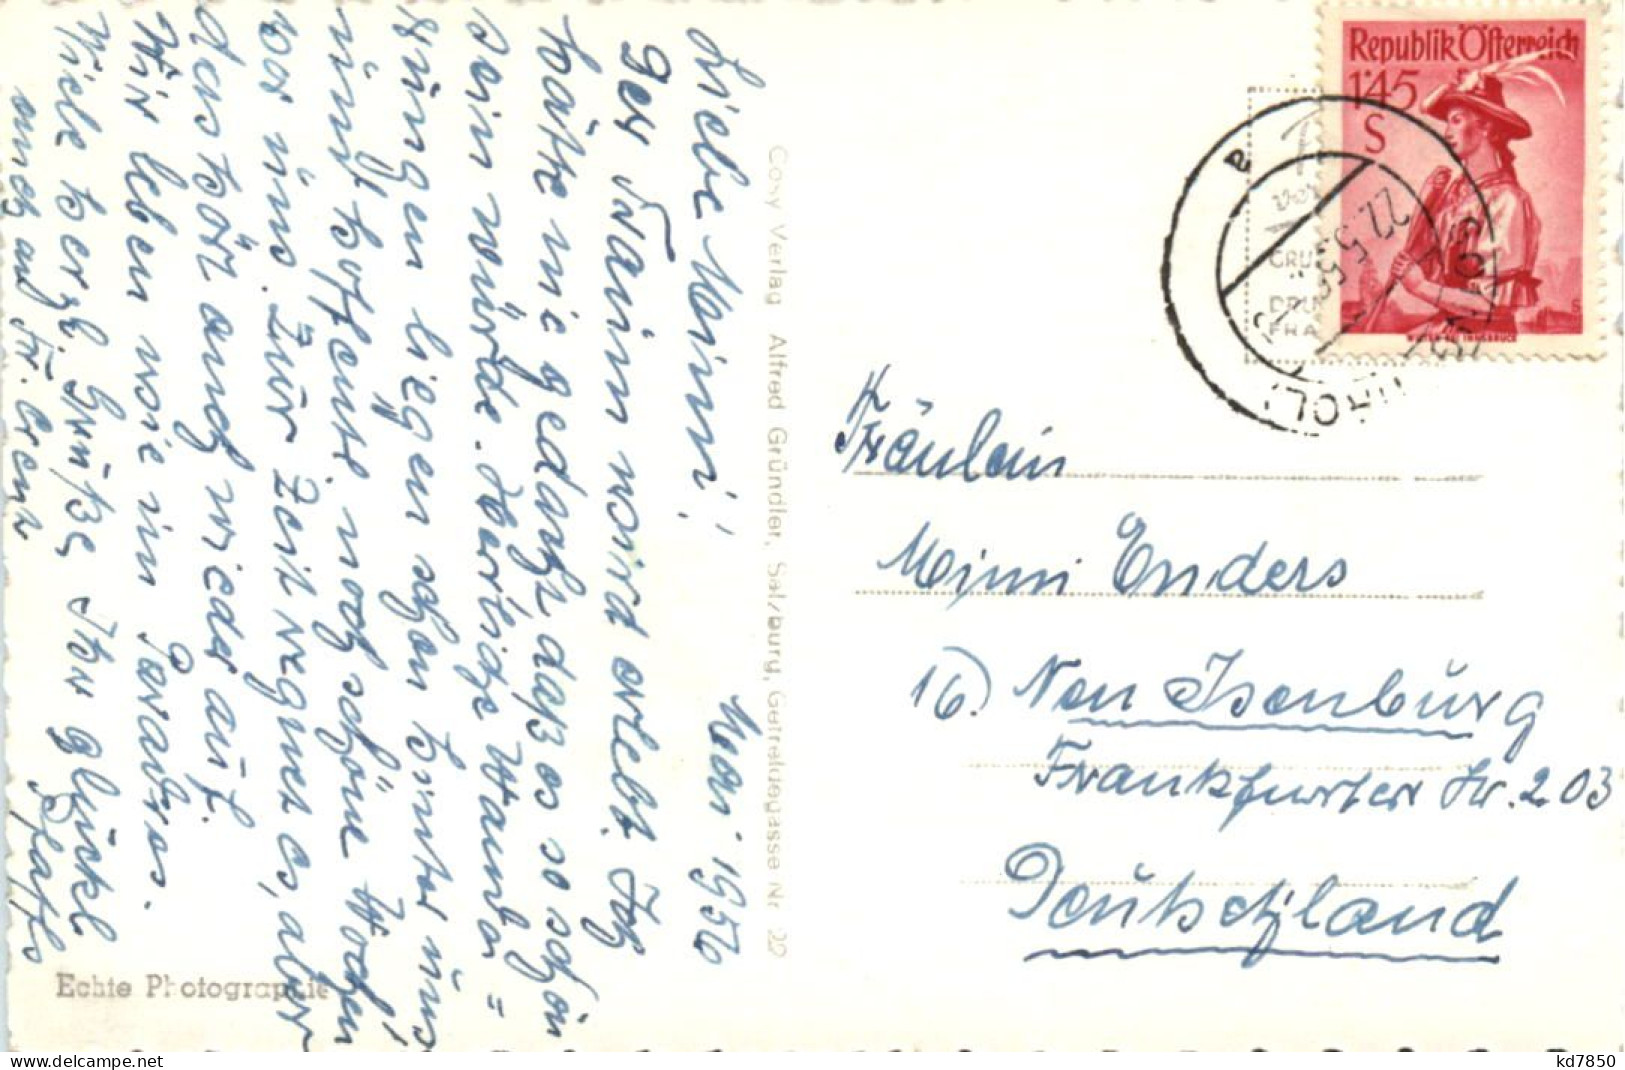 Liebe Mimi! Mai 1956
Der Traum wird erlebt. Ich
hätte nie gedacht daß es so schön
sein würde. Herrliche Wander=
rungen liegen schon hinter uns
und hoffentl. noch schöne Wochen
vor uns. Zur Zeit regnet es, aber
das hört auch wieder auf.
Wir leben wie im Paradies.
Viele herzl. Grüße, Ihr glückl.
auch an Fr. Creuz
Cosy Verlag Alfred Gründler, Salzburg, Getreidegasse Nr. 22
Echte Photographie
Republik Österreich
1·45
S
WILTEN BEI INNSBRUCK
22.5.56
TIROL
Fräulein
Mimi Enders
16) Neu Isenburg
Frankfurter Str. 203
Deutschland
www.delcampe.net
kd7850